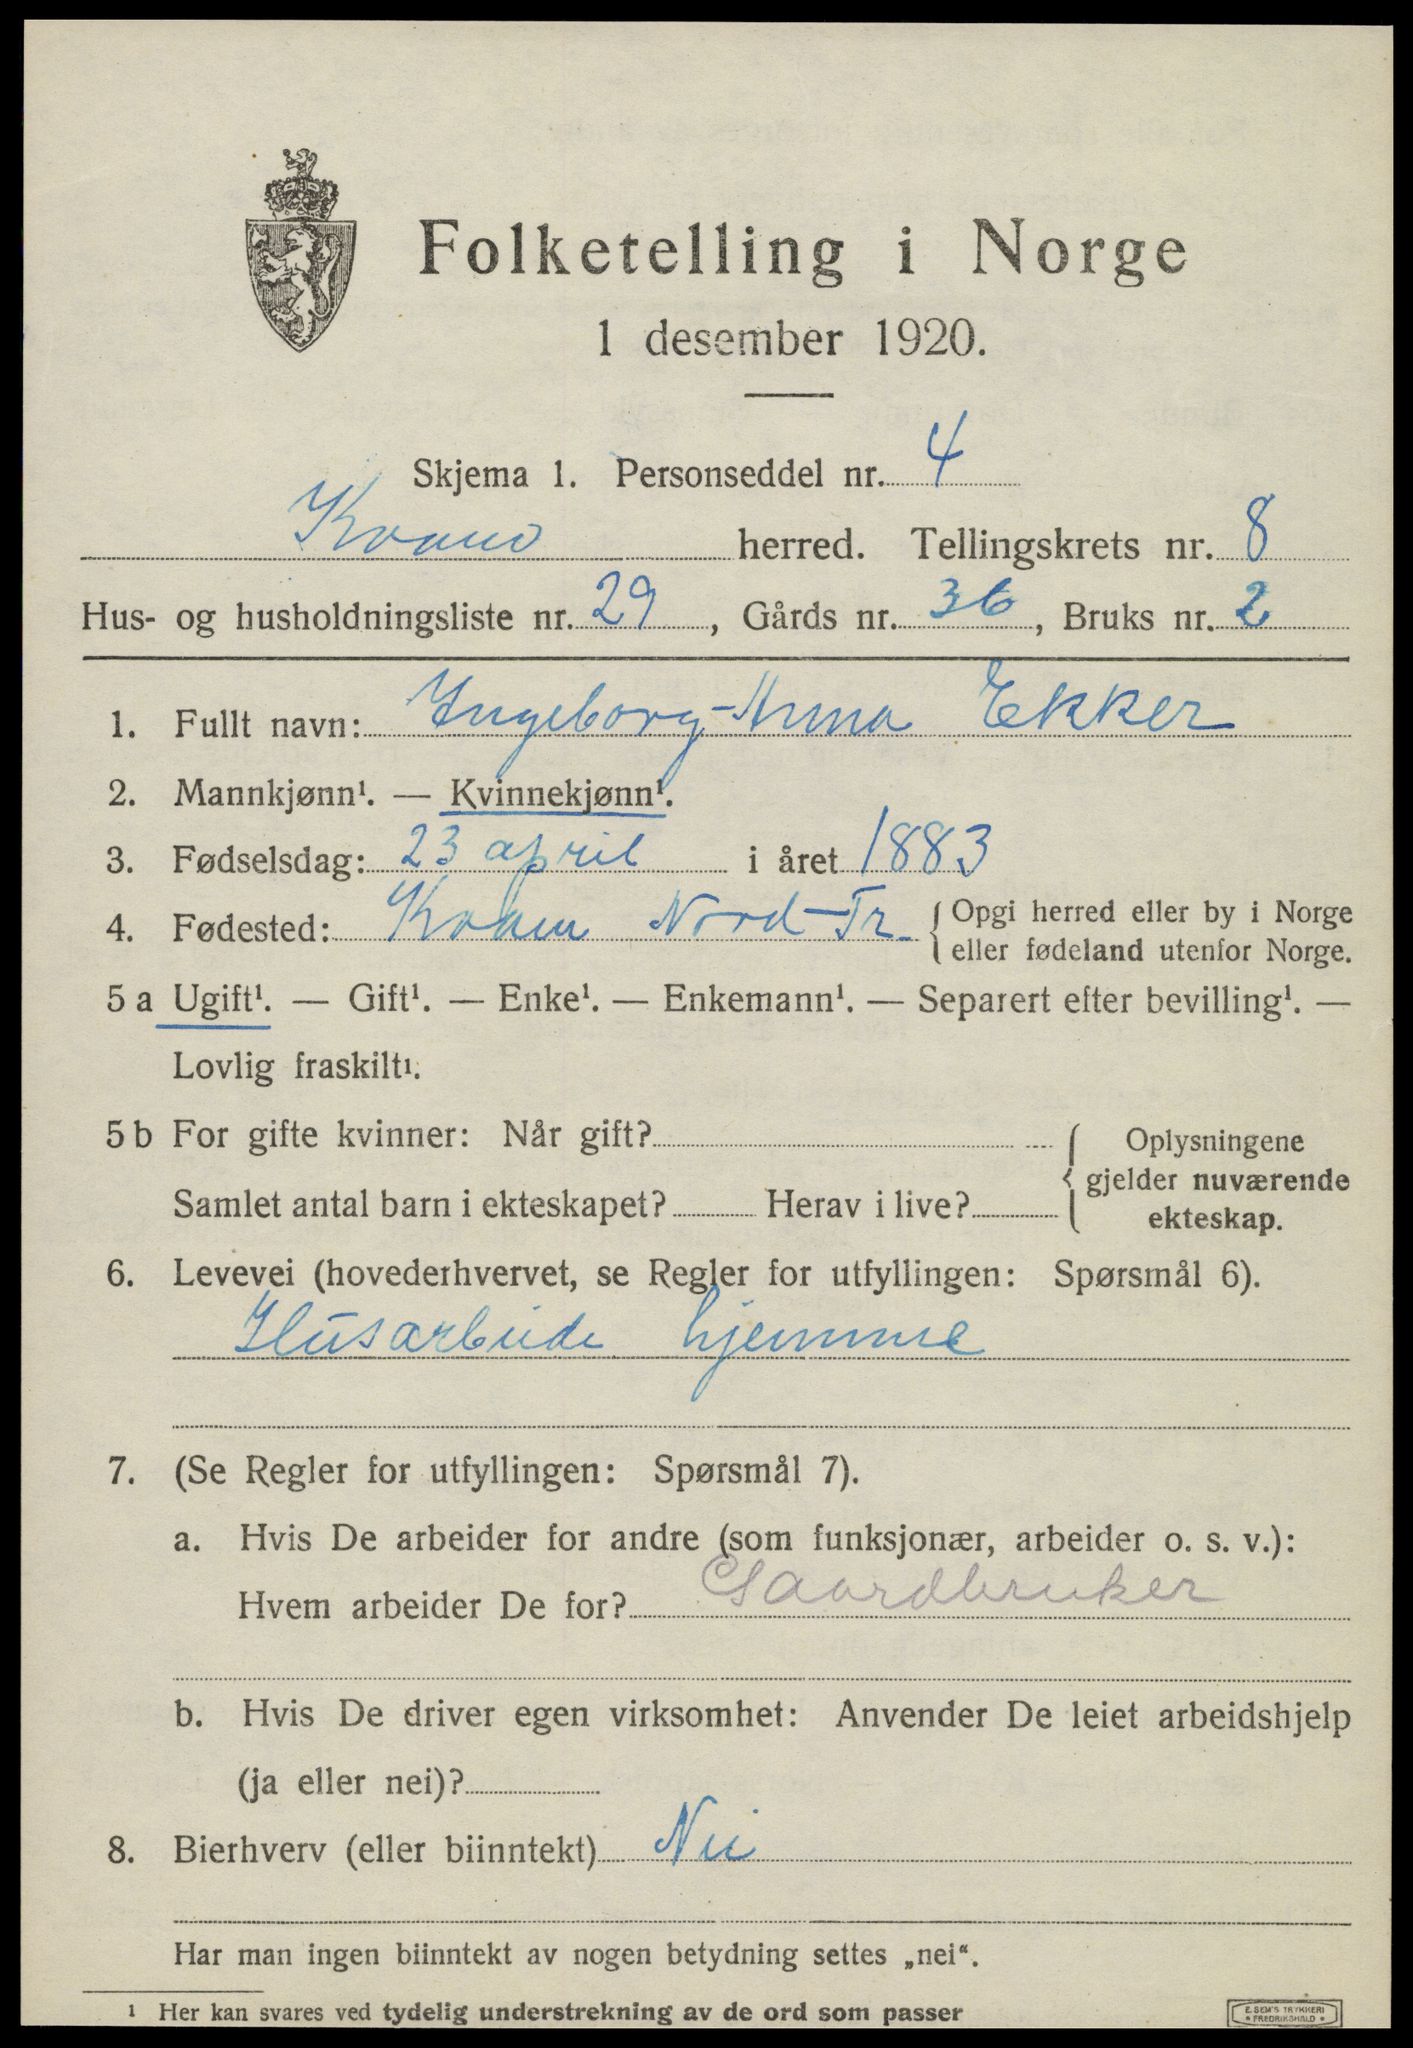 Folketelling i Norge
1 desember 1920.
Skjema 1. Personseddel nr. 4
Kvam herred. Tellingskrets nr. 8
Hus- og husholdningsliste nr. 29, Gårds nr. 36, Bruks nr. 2
1. Fullt navn: Ingeborg-Anna Ekker
2. Mannkjønn¹. — Kvinnekjønn¹.
3. Fødselsdag: 23 april i året 1883
4. Fødested: Kvam Nord-Tr. { Opgi herred eller by i Norge
eller fødeland utenfor Norge.
5 a Ugift¹. — Gift¹. — Enke¹. — Enkemann¹. — Separert efter bevilling¹. —
Lovlig fraskilt¹.
5 b For gifte kvinner: Når gift? { Oplysningene
gjelder nuværende
Samlet antal barn i ekteskapet? Herav i live? ekteskap.
6. Levevei (hovederhvervet, se Regler for utfyllingen: Spørsmål 6).
Husarbeide hjemme
7. (Se Regler for utfyllingen: Spørsmål 7).
a. Hvis De arbeider for andre (som funksjonær, arbeider o. s. v.):
Hvem arbeider De for? Gaardbruker
b. Hvis De driver egen virksomhet: Anvender De leiet arbeidshjelp
(ja eller nei)?
8. Bierhverv (eller biinntekt) Nei
Har man ingen biinntekt av nogen betydning settes „nei“.
¹ Her kan svares ved tydelig understrekning av de ord som passer
E. SEM'S TRYKKERI
FREDRIKSHALD